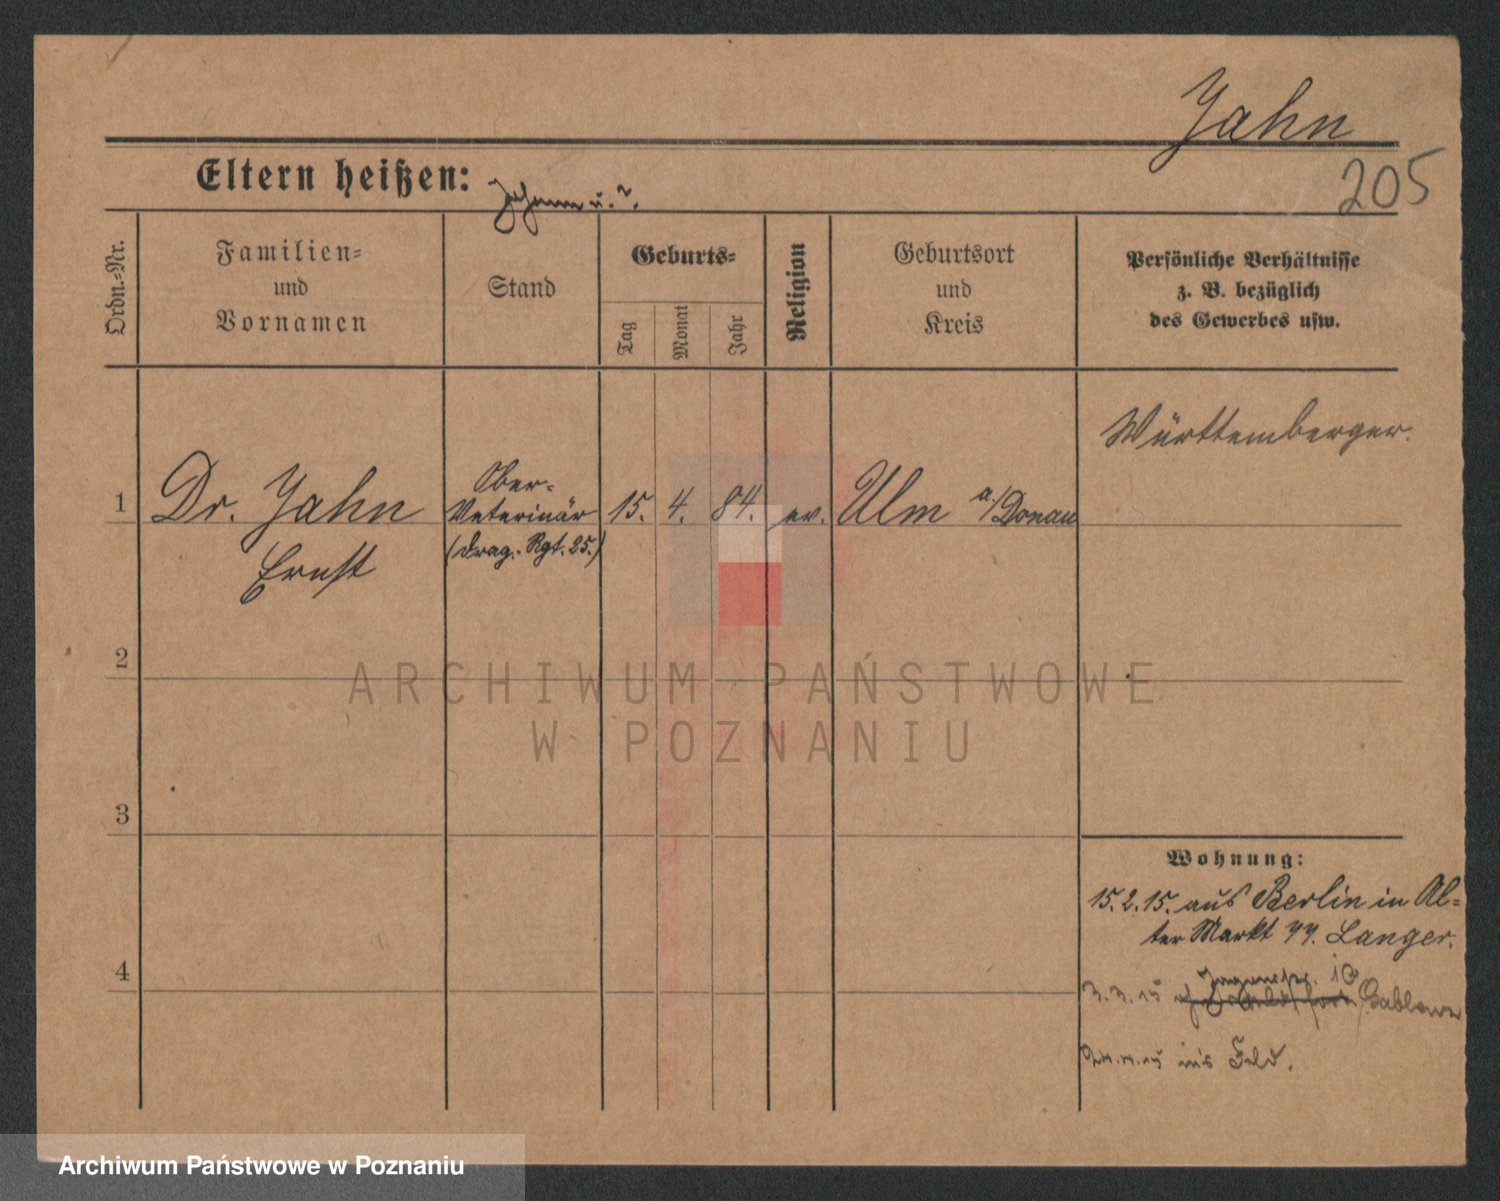 Jahn
205
Eltern heißen: Johann u. ?.
Ordn.=Nr.
Familien=
und
Vornamen
Stand
Geburts=
Tag
Monat
Jahr
Religion
Geburtsort
und
Kreis
Persönliche Verhältnisse
z. B. bezüglich
des Gewerbes usw.
Württemberger.
1
Dr. Jahn
Ernst
Ober-
Veterinär
(Drag. Rgt. 25.)
15. 4. 84. ev. Ulm a/Donau
2
ARCHIWUM PAŃSTWOWE
W POZNANIU
3
Wohnung:
15.2.15. aus Berlin in Al=
ter Markt 77. Langer.
4
3.3.15
ins Feld.
Archiwum Państwowe w Poznaniu